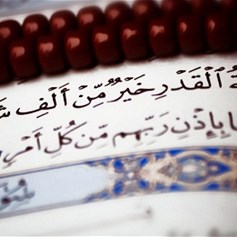 ةُ الْقَدْرِ خَيْرٌ مِّنْ أَلْفِ شَ
بِإِذْنِ رَبِّهِم مِّن كُلِّ أَمْرٍ